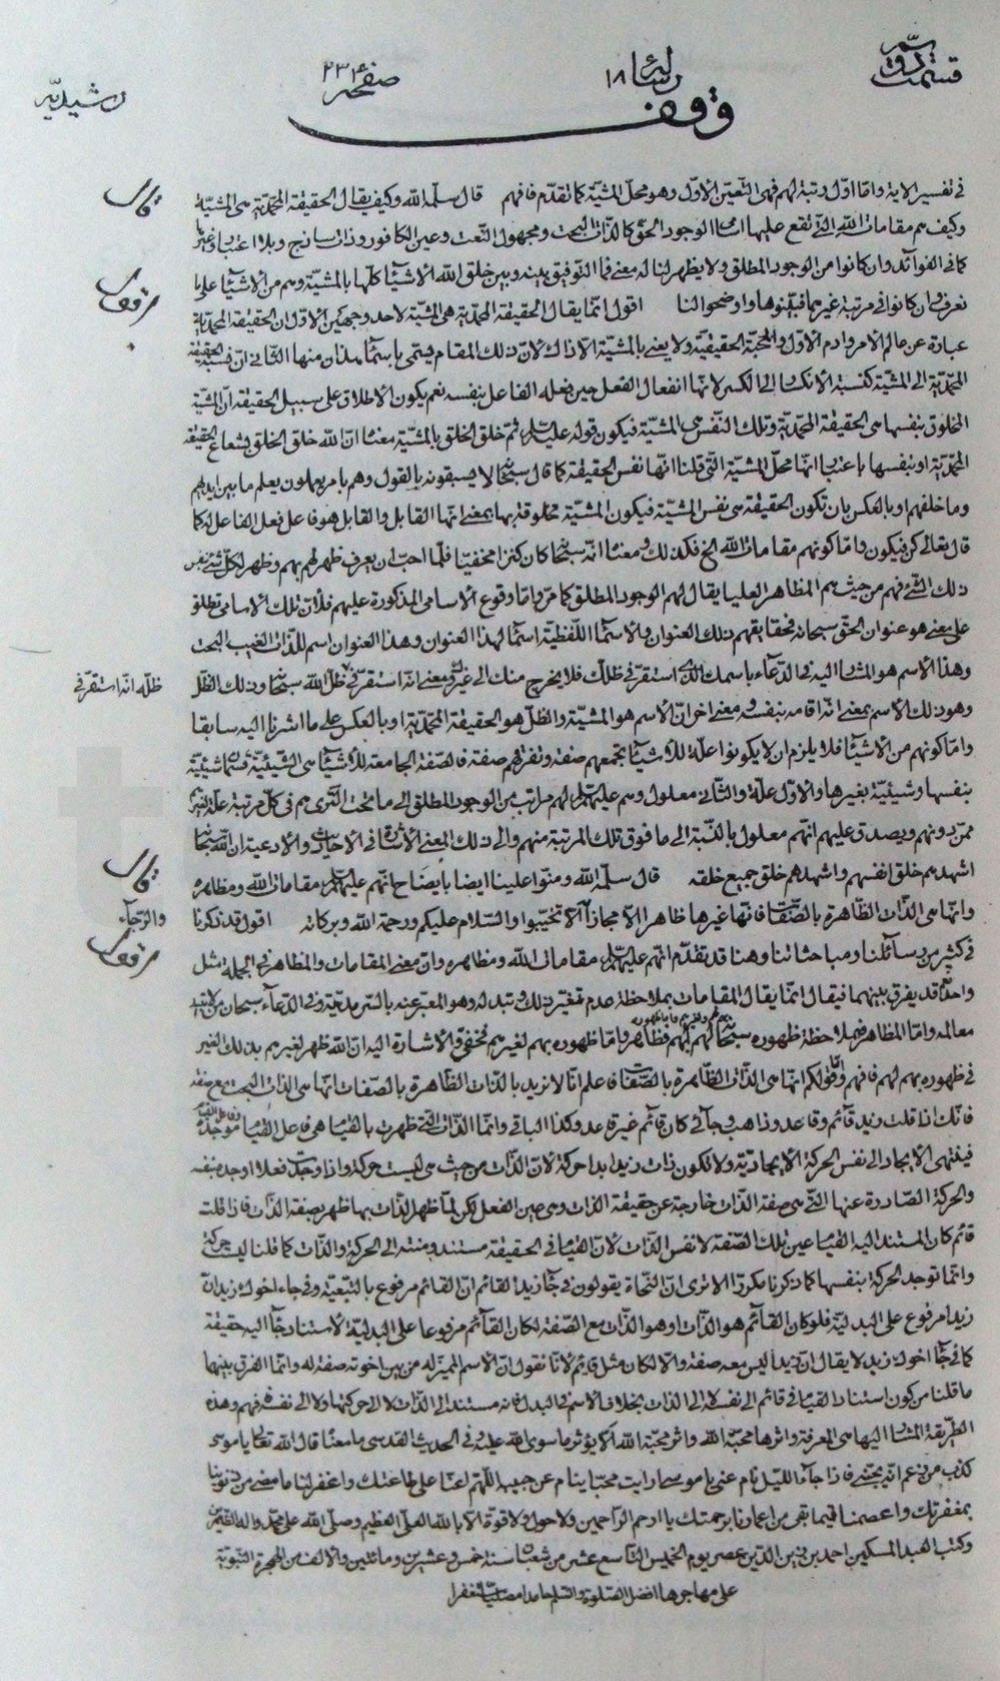 قسمت دوم رسالة ١٨ صفحه ٢٣٤ رشيديّه
وقف
في تفسير الاية وامّا اوّل رتبة لهم فهى التّعيّن الاوّل وهو محلّ المشيّة كما تقدّم فافهم قال سلّمه اللّه وكيف يقال الحقيقة المحمّديّة هى المشيّة
وكيف هم مقامات اللّه الّتى تقع عليها اسماء الوجود الحقّ كالذّات البحت ومجهول النّعت وعين الكافور وذات ساذج وبلا اعتبار
كما فى الفوائد وان كانوا من الوجود المطلق ولا يظهر لنا له معنى فما التوفيق بينه وبين خلق اللّه الاشياء كلّها بالمشيّة وهم من الاشياء على ما
نعرف وان كانوا فى مرتبة غيرها فبيّنوها واوضحوا لنا اقول انّما يقال الحقيقة المحمّديّة هى المشيّة لاحد وجهين الاوّل ان الحقيقة المحمّديّة
عبارة عن عالم الامر وادم الاوّل والمحبّة الحقيقيّة ولا يعنى بالمشيّة الّا ذاك لانّ ذلك المقام يسمّى باسماء هذان منها الثّانى انّ نسبة الحقيقة
المحمّديّة الى المشيّة كنسبة الانكسار الى الكسر لانّها انفعال الفعل حين فعله الفاعل بنفسه نعم يكون الاطلاق على سبيل الحقيقة انّ المشيّة
المخلوق بنفسها هى الحقيقة المحمّديّة وتلك النّفس هى المشيّة فيكون قوله عليه السلام ثم خلق الخلق بالمشيّة معناه انّ اللّه خلق الخلق بشعاع الحقيقة
المحمّديّة او بنفسها باعتبار انّها محلّ المشيّة الّتى قلنا انّها نفس الحقيقة كما قال سبحانه لا يسبقونه بالقول وهم بامره يعملون يعلم ما بين ايديهم
وما خلفهم او بالعكس بان تكون الحقيقة هى نفس المشيّة فيكون المشيّة مخلوقة بها بمعنى انّها القابل والقابل هو فاعل فعل الفاعل له كما
قال تعالى كن فيكون وامّا كونهم مقامات اللّه الخ فكذلك ومعناه انّه سبحانه كان كنزا مخفيّا فلمّا احبّ ان يعرف ظهر لهم بهم وظهر لكل شئ بنفس
ذلك الشّئ فهم من حيث هم المظاهر العليا يقال لهم الوجود المطلق كما مرّ وامّا وقوع الاسامى المذكورة عليهم فلانّ تلك الاسامى تطلق
على معنى هو عنوان الحقّ سبحانه فحقايقهم ذلك العنوان والاسماء اللّفظيّة اسماء لهذا العنوان وهذا العنوان اسم للذّات الغيب البحت
وهذا الاسم هو المشار اليه فى الدّعاء باسمك الذى استقرّ فى ظلّك فلا يخرج منك الى غيرك ومعنى انّه استقرّ فى ظلّ اللّه سبحانه وذلك الظّل
ظلّه انّه استقرّ فى
وهو ذلك الاسم بمعنى انّه اقامه بنفسه وفى معنى اخر انّ الاسم هو المشيّة والظّل هو الحقيقة المحمّديّة او بالعكس على ما اشرنا اليه سابقا
وامّا كونهم من الاشياء فلا يلزم ان لا يكونوا علّة للاشياء تجمعهم صفة وتفرقهم صفة فالصّفة الجامعة للاشياء هى الشّيئيّة فمنها شيئيّة
بنفسها وشيئيّة بغيرها والاوّل علّة والثّانى معلول وهم عليهم السلام لهم مراتب من الوجود المطلق الى ما تحت الثّرى هم فى كلّ مرتبة علّة لغيرهم
ممّن دونهم ويصدق عليهم انّهم معلول بالنّسبة الى ما فوق تلك المرتبة منهم والى ذلك المعنى الاشارة فى الاحاديث والادعية ان اللّه سبحانه
اشهدهم خلق انفسهم واشهدهم خلق جميع خلقه قال سلّمه اللّه ومنّوا علينا ايضا بايضاح انّهم عليهم السلام مقامات اللّه ومظاهره
وانّها هى الذّات الظّاهرة بالصّفات فانّها غيرها ظاهرا الّا مجازا والرّجاء الّا تخيّبوا والسّلام عليكم ورحمة اللّه وبركاته اقول قد ذكرنا
فى كثير من رسائلنا ومباحثاتنا وهنا قد تقدّم انّهم عليهم السلام مقامات اللّه ومظاهره وانّ معنى المقامات والمظاهر فى الجملة مثل
واحد وقد يفرق بينهما فيقال انّما يقال المقامات بملاحظة عدم تغيّر ذلك وتبدله وهو المعبّر عنه بالسّرمديّة وفى الدّعاء سبحان من لا تبيد
معالمه وامّا المظاهر فبملاحظة ظهوره سبحانه لهم بهم فظاهر وامّا ظهوره بهم لغيرهم فخفىّ والاشارة اليه انّ اللّه ظهر لغيرهم بذلك الغير
فى ظهوره بهم لهم فافهم وامّا قولكم انّها هى الذّات الظّاهرة بالصّفات فاعلم انّا لا نريد بالذّات الظّاهرة بالصّفات انّها هى الذات البحت مع صفة
فانّك اذا قلت زيد قائم وقاعد وذاهب وجائى كان قائم غير قاعد وكذا الباقى وانّما الذّات الّتى ظهرت بالقيام هى فاعل القيام
فينتهى الايجاد الى نفس الحركة الايجاديّة ولا تكون ذات زيد ابدا حركة لانّ الذّات من حيث هى ليست حركة واذا اوجدت فعلا اوجد بنفسه
والحركة الصّادرة عنها الّتى هى صفة الذّات خارجة عن حقيقة الذات وهى عين الفعل لكن لمّا ظهر الذّات بها ظهر بصفة الذّات فاذا قلت
قائم كان المستند اليه القيام عين تلك الصّفة لا نفس الذّات لانّ القيام فى الحقيقة مستند ومنته الى الحركة والذّات كما قلنا ليست حركة
وانّما توجد الحركة بنفسها كما ذكرنا مكررا الا ترى انّ النّحاة يقولون فى جاء زيد القائم انّ القائم مرفوع بالتّبعيّة وفى جاء اخوك زيد انّ
زيدا مرفوع على البدليّة فلو كان القائم هو الذّات او هو الذّات مع الصّفة لكان القائم مرفوعا على البدليّة لاستناد جاء اليه حقيقة
كما فى جاء اخوك زيد لا يقال ان زيدا ليس معه صفة والا لكان مثل قائم لانّا نقول انّ الاسم المميّز له من بين اخوته صفة له وانّما الفرق بينهما
ما قلنا من كون استناد القيام فى قائم الى نفسه لا الى الذات بخلاف الاسم فى البدل فانه مستند الى الذات لا الى حركتها ولا الى نفسه فافهم وهذه
الطّريقة المشار اليها هى المعرفة واثرها محبّة اللّه واثر محبّة اللّه الّا يؤثر ما سوى اللّه عليه وفى الحديث القدسى ما معناه قال اللّه تعالى يا موسى
كذب من زعم انّه يحبّنى فاذا جاء اللّيل نام عنّى يا موسى ارايت محبّا ينام عن حبيبه اللّهم اعنّا على طاعتك واغفر لنا ما مضى من ذنوبنا
بمغفرتك واعصمنا فيما بقى من اعمارنا برحمتك يا ارحم الرّاحمين ولا حول ولا قوّة الا باللّه العلىّ العظيم وصلّى اللّه على محمّد واله الطّاهرين
وكتب العبد المسكين احمد بن زين الدّين عصر يوم الخميس التّاسع عشر من شعبان سنة خمس وعشرين ومائتين والالف من الهجرة النّبويّة
على مهاجرها افضل الصّلوة والسّلام حامدا مصلّيا مستغفرا